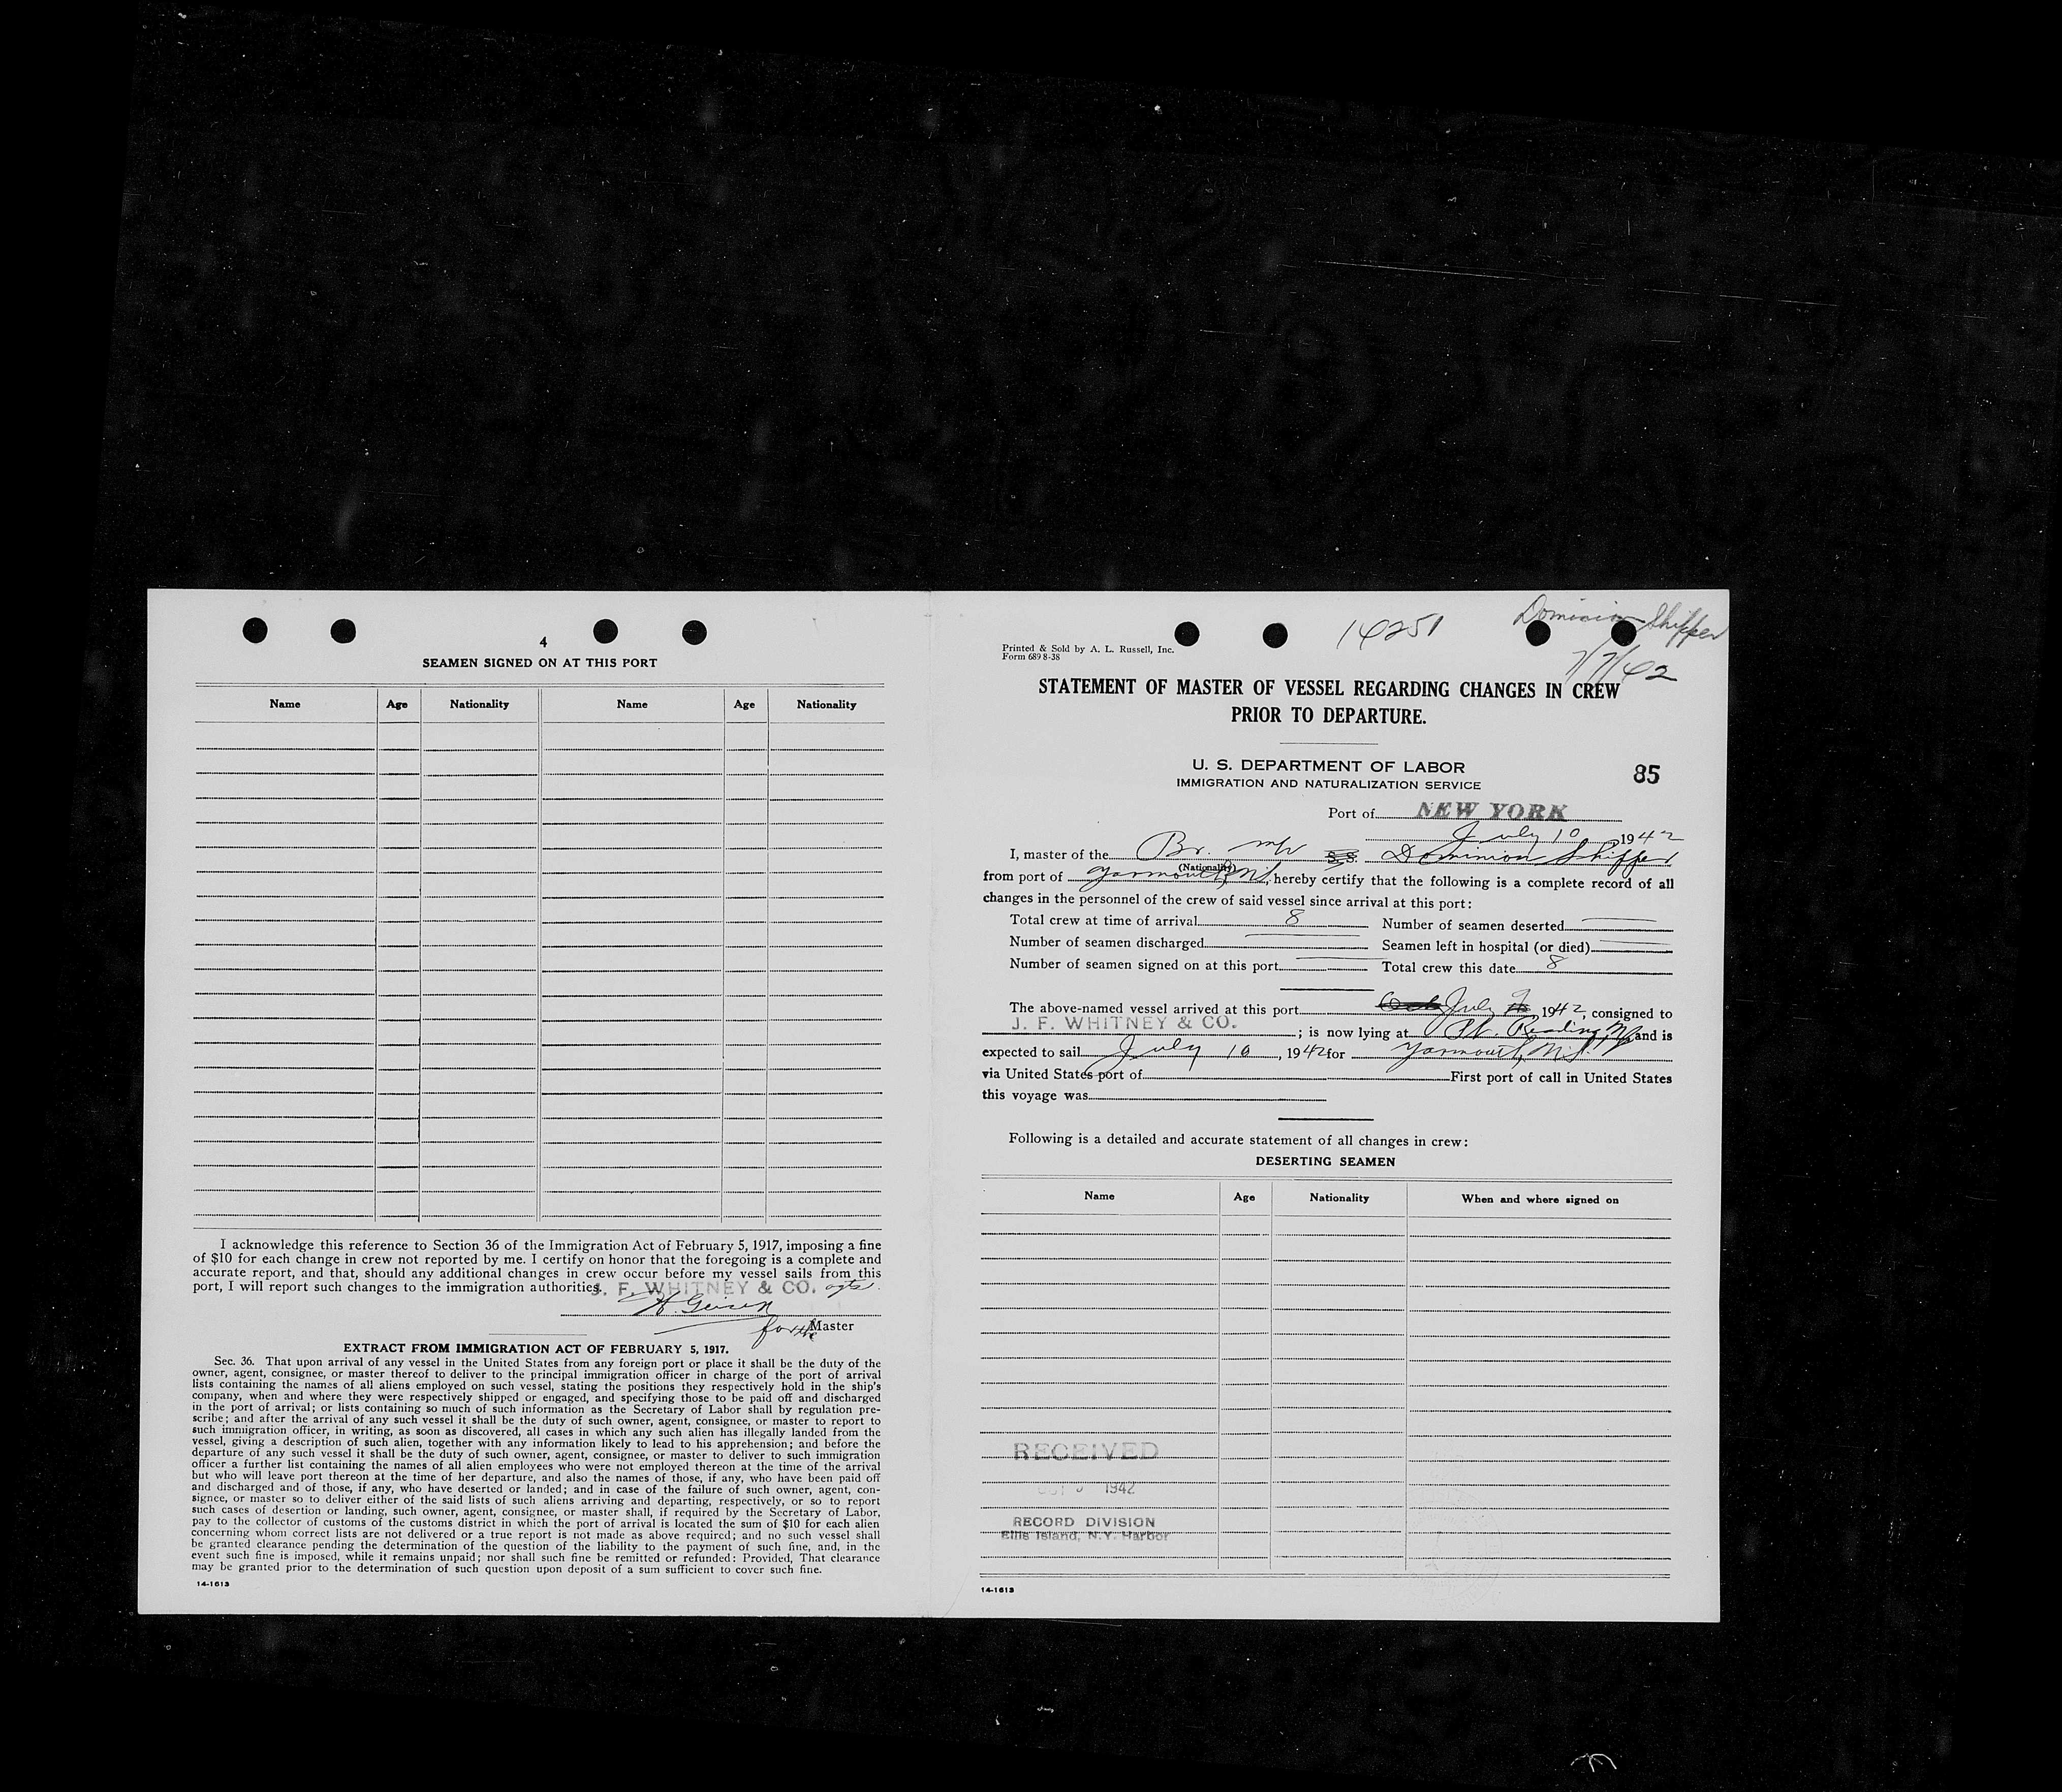 4
SEAMEN SIGNED ON AT THIS PORT
Name Age Nationality Name Age Nationality
I acknowledge this reference to Section 36 of the Immigration Act of February 5, 1917, imposing a fine
of $10 for each change in crew not reported by me. I certify on honor that the foregoing is a complete and
accurate report, and that, should any additional changes in crew occur before my vessel sails from this
port, I will report such changes to the immigration authorities.
J. F. WHITNEY & CO. agts.
for the Master
EXTRACT FROM IMMIGRATION ACT OF FEBRUARY 5, 1917.
Sec. 36. That upon arrival of any vessel in the United States from any foreign port or place it shall be the duty of the
owner, agent, consignee, or master thereof to deliver to the principal immigration officer in charge of the port of arrival
lists containing the names of all aliens employed on such vessel, stating the positions they respectively hold in the ship's
company, when and where they were respectively shipped or engaged, and specifying those to be paid off and discharged
in the port of arrival; or lists containing so much of such information as the Secretary of Labor shall by regulation pre-
scribe; and after the arrival of any such vessel it shall be the duty of such owner, agent, consignee, or master to report to
such immigration officer, in writing, as soon as discovered, all cases in which any such alien has illegally landed from the
vessel, giving a description of such alien, together with any information likely to lead to his apprehension; and before the
departure of any such vessel it shall be the duty of such owner, agent, consignee, or master to deliver to such immigration
officer a further list containing the names of all alien employees who were not employed thereon at the time of the arrival
but who will leave port thereon at the time of her departure, and also the names of those, if any, who have been paid off
and discharged and of those, if any, who have deserted or landed; and in case of the failure of such owner, agent, con-
signee, or master so to deliver either of the said lists of such aliens arriving and departing, respectively, or so to report
such cases of desertion or landing, such owner, agent, consignee, or master shall, if required by the Secretary of Labor,
pay to the collector of customs of the customs district in which the port of arrival is located the sum of $10 for each alien
concerning whom correct lists are not delivered or a true report is not made as above required; and no such vessel shall
be granted clearance pending the determination of the question of the liability to the payment of such fine, and, in the
event such fine is imposed, while it remains unpaid; nor shall such fine be remitted or refunded: Provided, That clearance
may be granted prior to the determination of such question upon deposit of a sum sufficient to cover such fine.
14-1613
14251
Dominion Shipper
7/7/42
Printed & Sold by A. L. Russell, Inc.
Form 689 8-38
STATEMENT OF MASTER OF VESSEL REGARDING CHANGES IN CREW
PRIOR TO DEPARTURE.
U. S. DEPARTMENT OF LABOR
IMMIGRATION AND NATURALIZATION SERVICE
85
Port of NEW YORK
July 10 1942
I, master of the Br. mv S. S. Dominion Shipper
(Nationality)
from port of Yarmouth, NS, hereby certify that the following is a complete record of all
changes in the personnel of the crew of said vessel since arrival at this port:
Total crew at time of arrival 8 Number of seamen deserted
Number of seamen discharged Seamen left in hospital (or died)
Number of seamen signed on at this port Total crew this date 8
The above-named vessel arrived at this port July 7 1942, consigned to
J. F. WHITNEY & CO. ; is now lying at Pt. Reading NJ and is
expected to sail July 10, 1942 for Yarmouth, N.S.
via United States port of First port of call in United States
this voyage was
Following is a detailed and accurate statement of all changes in crew:
DESERTING SEAMEN
Name Age Nationality When and where signed on
RECEIVED
1942
RECORD DIVISION
Ellis Island, N.Y. Harbor
14-1613